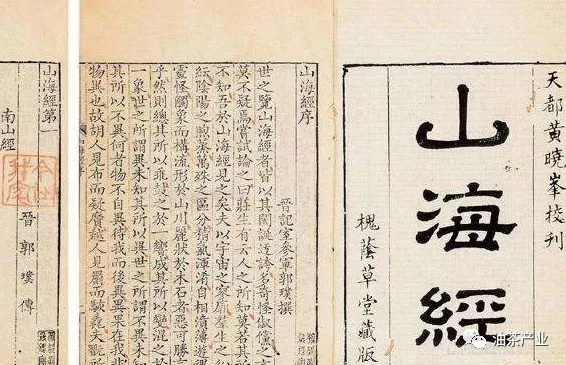 天都黄曉峯校刊
山海經
槐蔭草堂藏版
山海經序
晉記室參軍郭璞撰
世之覽山海經者皆以其閎誕迂誇多奇怪俶儻之言
莫不疑焉嘗試論之曰莊生有云人之所知莫若其所
不知吾於山海經見之矣夫以宇宙之寥廓羣生之
紜陰陽之煦蒸萬殊之區分精氣渾淆自相濆薄遊
靈怪觸象而構流形於山川麗狀於木石者惡可勝言
乎然則總其所以乖鼓之於一響成其所以變混之於
一象世之所謂異未知其所以異世之所謂不異未知
其所以不異何者物不自異待我而後異異果在我非
物異也故胡人見布而疑黂越人見罽而駭毳夫翫所
山海經第一
南山經
晉 郭璞 傳
油茶产业